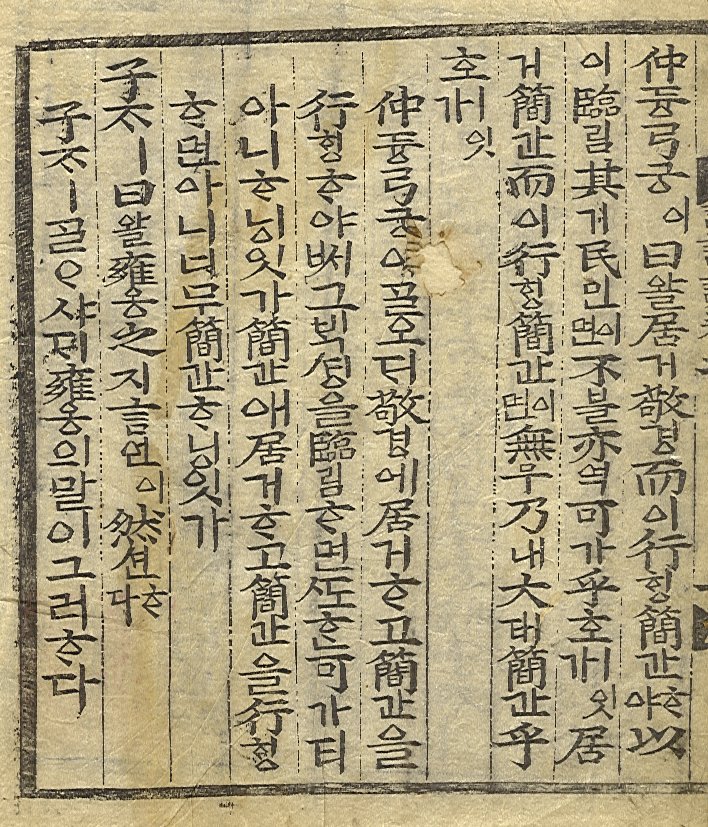 仲듕弓궁이曰왈居거敬경而이行ᄒᆡᆼ簡간ᄒᆞ야以
이臨림其기民민이면不블亦역可가乎호ㅣ잇가居
거簡간而이行ᄒᆡᆼ簡간이면無무乃내大대簡간乎
호ㅣ잇가
仲듕弓궁이ᄀᆞᆯ오ᄃᆡ敬경에居거ᄒᆞ고簡간을
行ᄒᆡᆼᄒᆞ야ᄡᅥ그ᄇᆡᆨ셩을臨림ᄒᆞ면ᄯᅩᄒᆞᆫ可가티
아니ᄒᆞ닝잇가簡간애居거ᄒᆞ고簡간을行ᄒᆡᆼ
ᄒᆞ면아니너무簡간ᄒᆞ닝잇가
子ᄌᆞㅣ曰왈雍옹之지言언이然션ᄒᆞ다
子ᄌᆞㅣᄀᆞᆯᄋᆞ샤ᄃᆡ雍옹의말이그러ᄒᆞ다